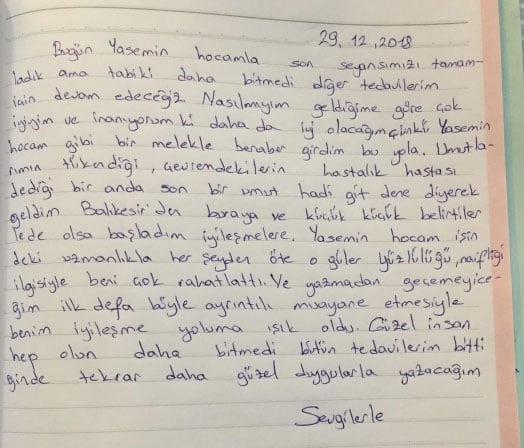 29.12.2018
Bugün Yasemin hocamla son seansımızı tamam-
ladık ama tabiki daha bitmedi diğer tedavilerim
için devam edeceğiz Nasılmıyım geldiğime göre çok
iyiyim ve inanıyorum ki daha da iyi olacağım çünkü Yasemin
hocam gibi bir melekle beraber girdim bu yola. Umutla-
rımın tükendiği, çevremdekilerin hastalık hastası
dediği bir anda son bir umut hadi git dene diyerek
geldim Balıkesir'den buraya ve küçük küçük belirtiler
lede olsa başladım iyileşmelere. Yasemin hocam işin
deki uzmanlıkla her şeyden öte o güler yüzlülüğü, naifliği
ilgisiyle beni çok rahatlattı. Ve yazmadan geçemeyice-
ğim ilk defa böyle ayrıntılı muayane etmesiyle
benim iyileşme yoluma ışık oldu. Güzel insan
hep olun daha bitmedi bütün tedavilerim bitti
ğinde tekrar daha güzel duygularla yazacağım
Sevgilerle